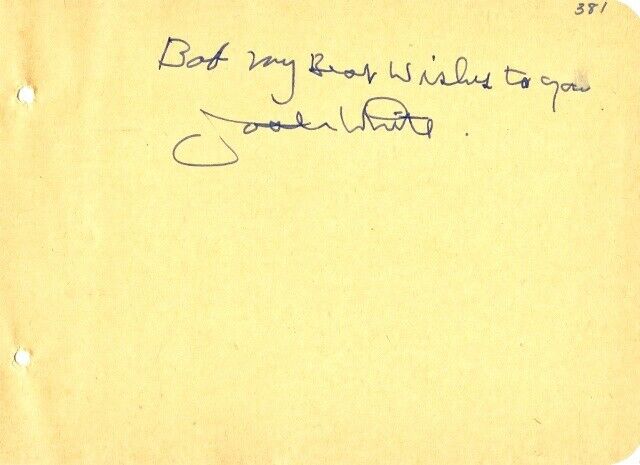 381
Bob my Best Wishes to you
Josh White.